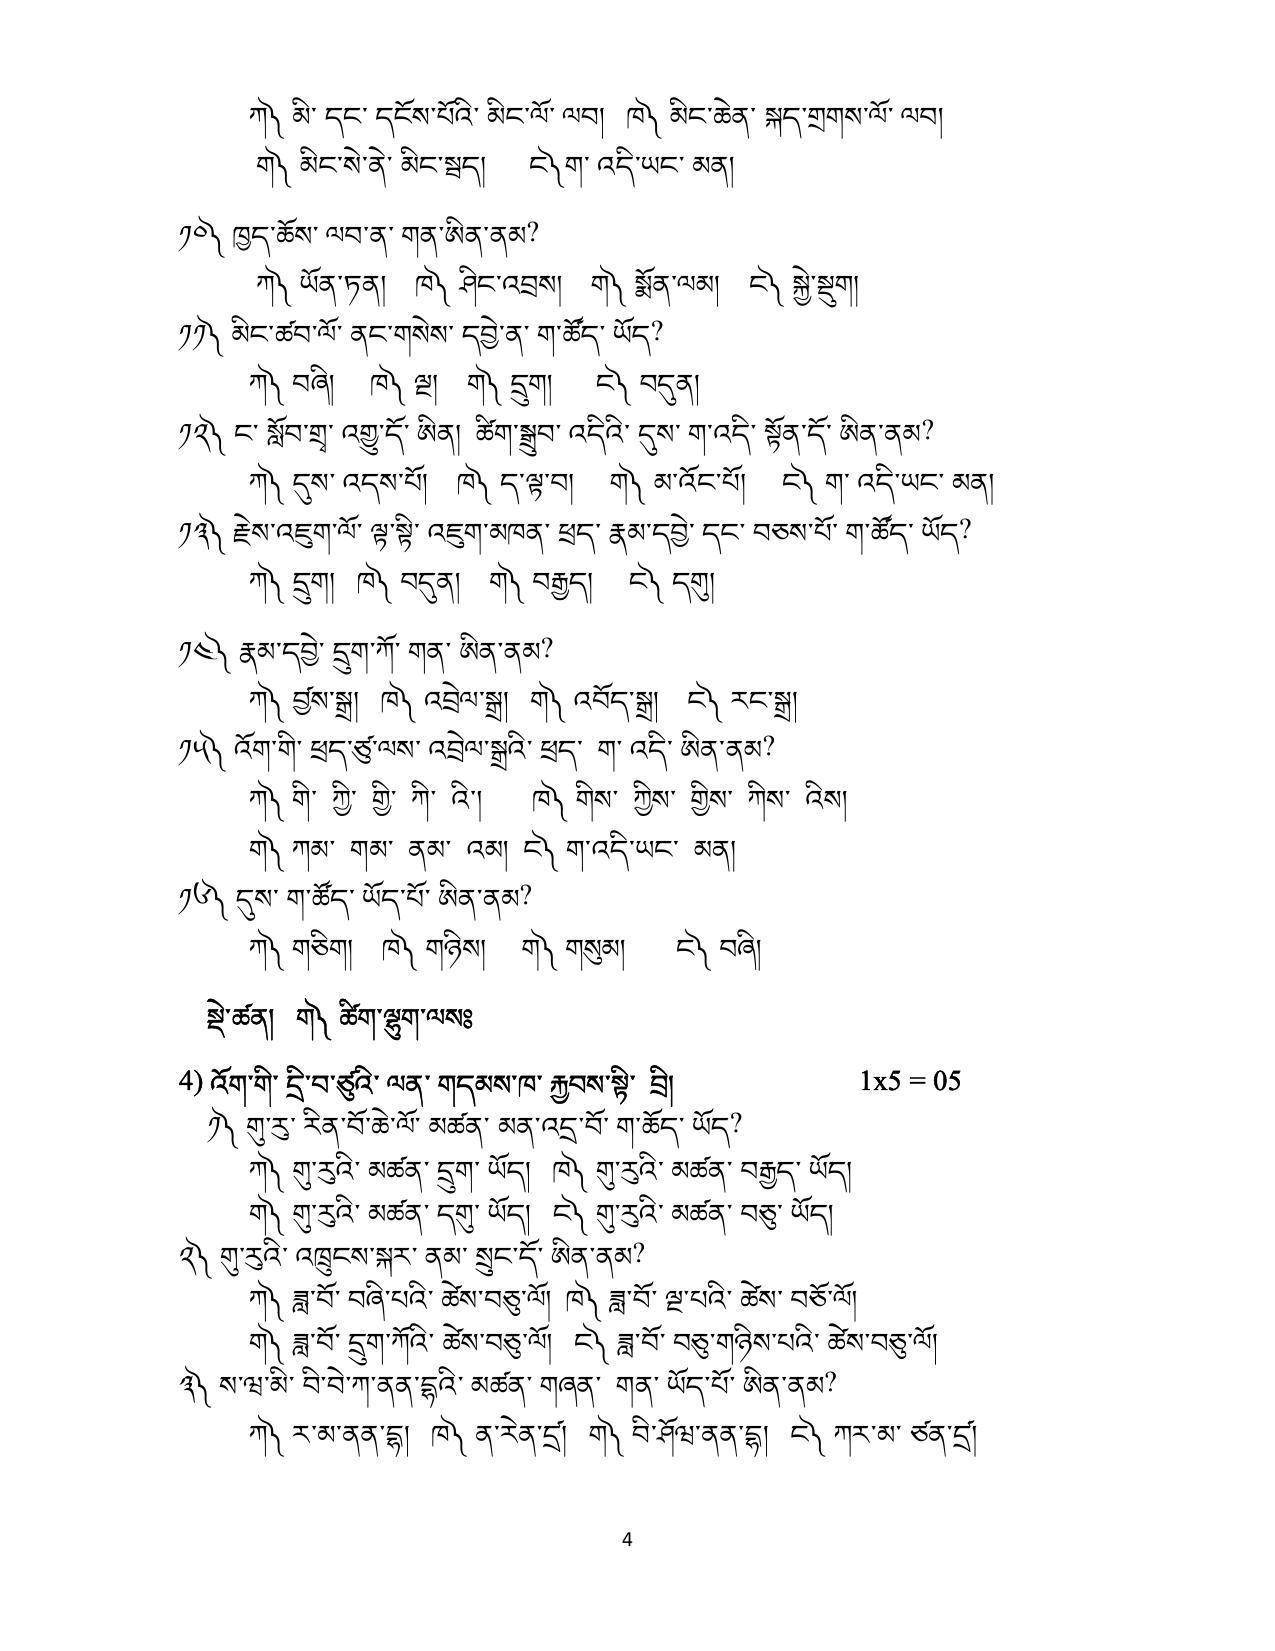 ཀ༽ མི་ དང་ དངོས་པོའི་ མིང་ལོ་ ལབ། ཁ༽ མིང་ཆེན་ སྐད་གྲགས་ལོ་ ལབ།
ག༽ མིང་སེ་ནེ་ མིང་སྦད། ང༽ ག་ འདི་ཡང་ མན།
༡༠༽ ཁྱད་ཆོས་ ལབ་ན་ གན་ཨིན་ནམ?
ཀ༽ ཡོན་ཏན། ཁ༽ ཤིང་འབྲས། ག༽ སྨོན་ལམ། ང༽ སྐྱེ་སྡུག།
༡༡༽ མིང་ཚབ་ལོ་ ནང་གསེས་ དབྱེ་ན་ ག་ཚོད་ ཡོད?
ཀ༽ བཞི། ཁ༽ ལྔ། ག༽ དྲུག། ང༽ བདུན།
༡༢༽ ང་ སློབ་གྲྭ་ འགྱུ་དོ་ ཨིན། ཚིག་སྒྲུབ་ འདིའི་ དུས་ ག་འདི་ སྟོན་དོ་ ཨིན་ནམ?
ཀ༽ དུས་ འདས་པོ། ཁ༽ ད་ལྟ་བ། ག༽ མ་འོང་པོ། ང༽ ག་ འདི་ཡང་ མན།
༡༣༽ རྗེས་འཇུག་ལོ་ ལྟ་སྟི་ འཇུག་མཁན་ ཕྲད་ རྣམ་དབྱེ་ དང་ བཅས་པོ་ ག་ཚོད་ ཡོད?
ཀ༽ དྲུག། ཁ༽ བདུན། ག༽ བརྒྱད། ང༽ དགུ།
༡༤༽ རྣམ་དབྱེ་ དྲུག་ཀོ་ གན་ ཨིན་ནམ?
ཀ༽ བྱས་སྒྲ། ཁ༽ འབྲེལ་སྒྲ། ག༽ འབོད་སྒྲ། ང༽ རང་སྒྲ།
༡༥༽ འོག་གི་ ཕྲད་ཙུ་ལས་ འབྲེལ་སྒྲའི་ ཕྲད་ ག་ འདི་ ཨིན་ནམ?
ཀ༽ གི་ ཀྱི་ གྱི་ ཀི་ འི་། ཁ༽ གིས་ ཀྱིས་ གྱིས་ ཀིས་ འིས།
ག༽ ཀམ་ གམ་ ནམ་ འམ། ང༽ ག་འདི་ཡང་ མན།
༡༦༽ དུས་ ག་ཚོད་ ཡོད་པོ་ ཨིན་ནམ?
ཀ༽ གཅིག། ཁ༽ གཉིས། ག༽ གསུམ། ང༽ བཞི།
སྡེ་ཚན། ག༽ ཚིག་ལྷུག་ལསཿ
4) འོག་གི་ དྲི་བ་ཙུའི་ ལན་ གདམས་ཁ་ རྐྱབས་སྟི་ བྲི། 1x5 = 05
༡༽ གུ་རུ་ རིན་པོ་ཆེ་ལོ་ མཚན་ མན་འདྲ་བོ་ ག་ཚོད་ ཡོད?
ཀ༽ གུ་རུའི་ མཚན་ དྲུག་ ཡོད། ཁ༽ གུ་རུའི་ མཚན་ བརྒྱད་ ཡོད།
ག༽ གུ་རུའི་ མཚན་ དགུ་ ཡོད། ང༽ གུ་རུའི་ མཚན་ བཅུ་ ཡོད།
༢༽ གུ་རུའི་ འཁྲུངས་སྐར་ ནམ་ སྲུང་དོ་ ཨིན་ནམ?
ཀ༽ ཟླ་བོ་ བཞི་པའི་ ཚེས་བཅུ་ལོ། ཁ༽ ཟླ་བོ་ ལྔ་པའི་ ཚེས་ བཅོ་ལོ།
ག༽ ཟླ་བོ་ དྲུག་ཀོའི་ ཚེས་བཅུ་ལོ། ང༽ ཟླ་བོ་ བཅུ་གཉིས་པའི་ ཚེས་བཅུ་ལོ།
༣༽ ས་ཝ་མི་ བི་བེ་ཀ་ནན་དྷའི་ མཚན་ གཞན་ གན་ ཡོད་པོ་ ཨིན་ནམ?
ཀ༽ ར་མ་ནན་དྷ། ཁ༽ ན་རེན་དྲ། ག༽ བི་ཤོཝ་ནན་དྷ། ང༽ ཀར་མ་ ཙན་དྲ།
4